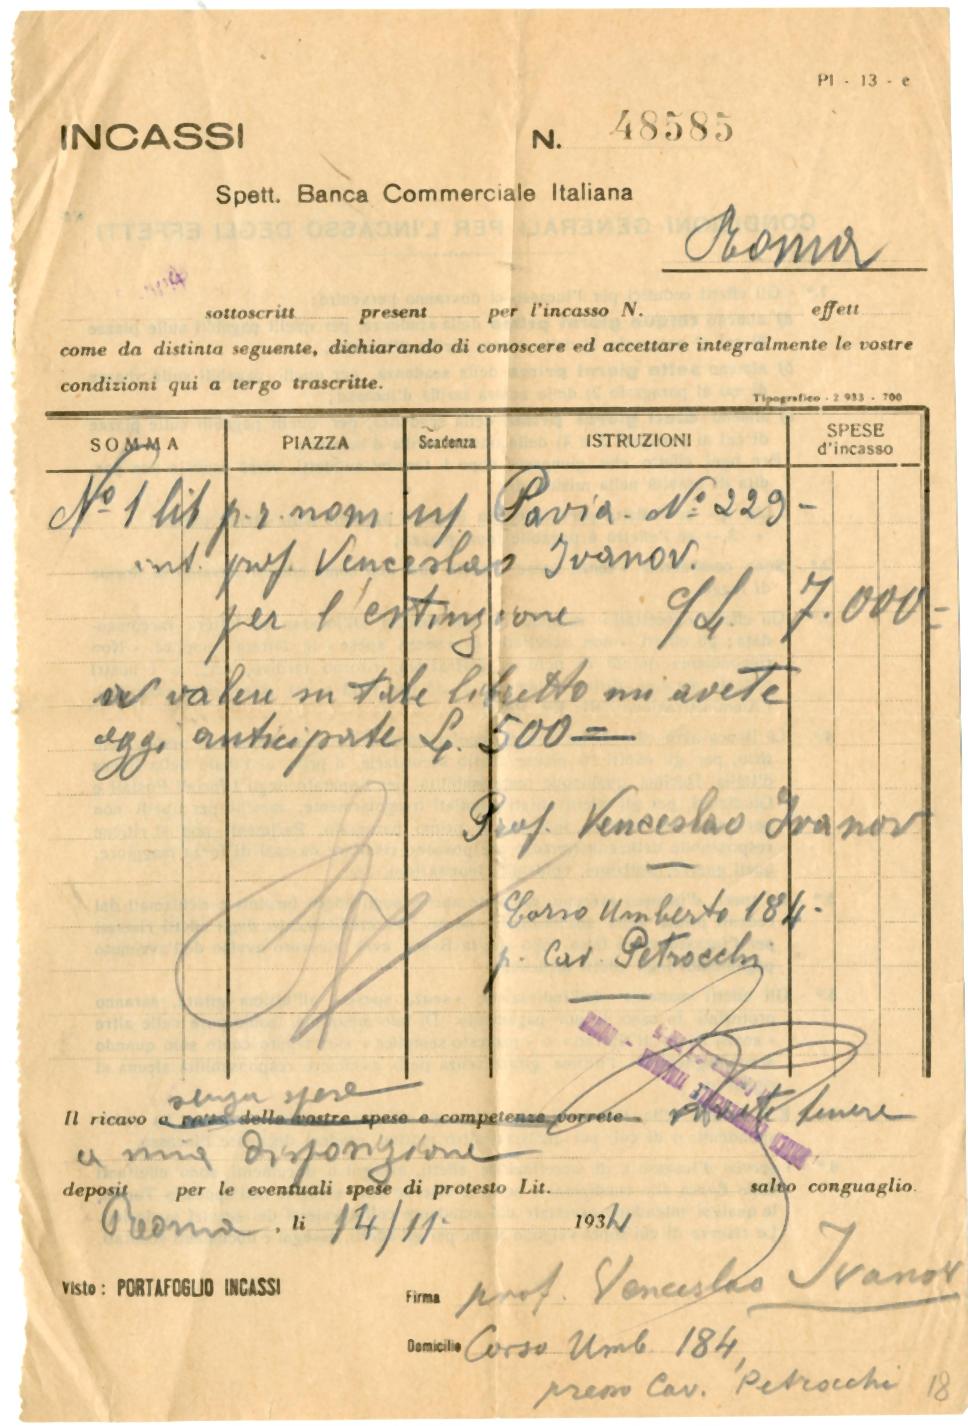 PI - 13 - e
INCASSI N. 48585
Spett. Banca Commerciale Italiana
Roma
sottoscritt present per l'incasso N. effett
come da distinta seguente, dichiarando di conoscere ed accettare integralmente le vostre
condizioni qui a tergo trascritte.
Tipografico - 2 933 - 700
SOMMA PIAZZA Scadenza ISTRUZIONI SPESE d'incasso
Nº 1 lib p.r. nom Pavia. Nº 229-
int. prof. Venceslao Ivanov.
per l'estinzione 7.000=
valere su tale libretto mi avete
oggi anticipate L. 500=
Prof. Venceslao Ivanov
Corso Umberto 184.
p. Cav. Petrocchi
senza spese
Il ricavo a netto delle vostre spese e competenze vorrete vorrete tenere
a mia disposizione
deposit per le eventuali spese di protesto Lit. salvo conguaglio.
Roma, li 14/11. 1934
Visto: PORTAFOGLIO INCASSI
Firma prof. Venceslao Ivanov
Domicilio Corso Umb. 184,
presso Cav. Petrocchi 18